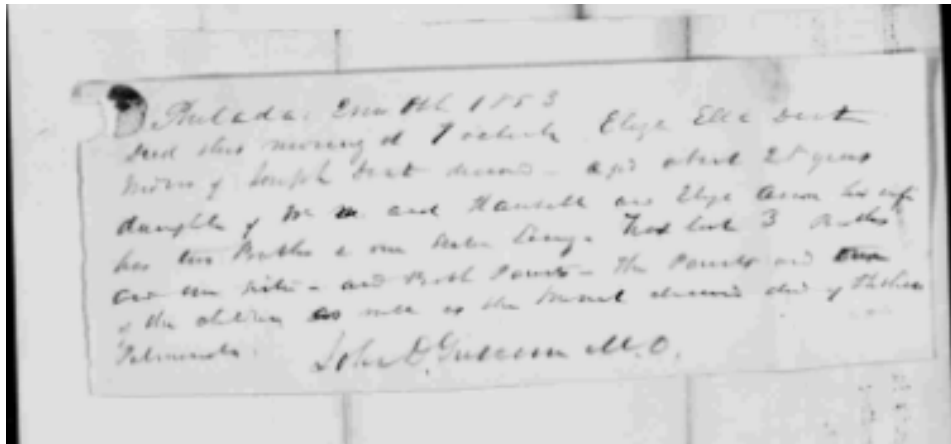 Philada 2 mo 8th 1853
Died this morning at 7 oclock Eliza Ella Dent
of Joseph Dent deceased - aged about 25 years
daughter of Wm and and Eliza his wife
has two Brothers & one Sister living - Has lost 3 Brothers
and one Sister - and Both Parents - The Parents and
of the children as well as the deceased died of Phthisis
Pulmonalis.
John D. Griscom M.D.